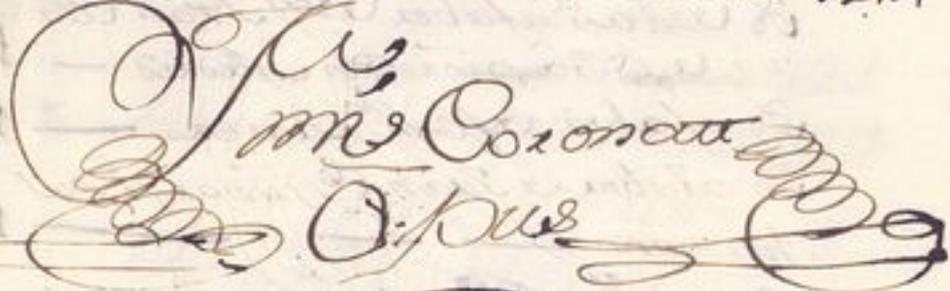 Finis Coronat
Opus